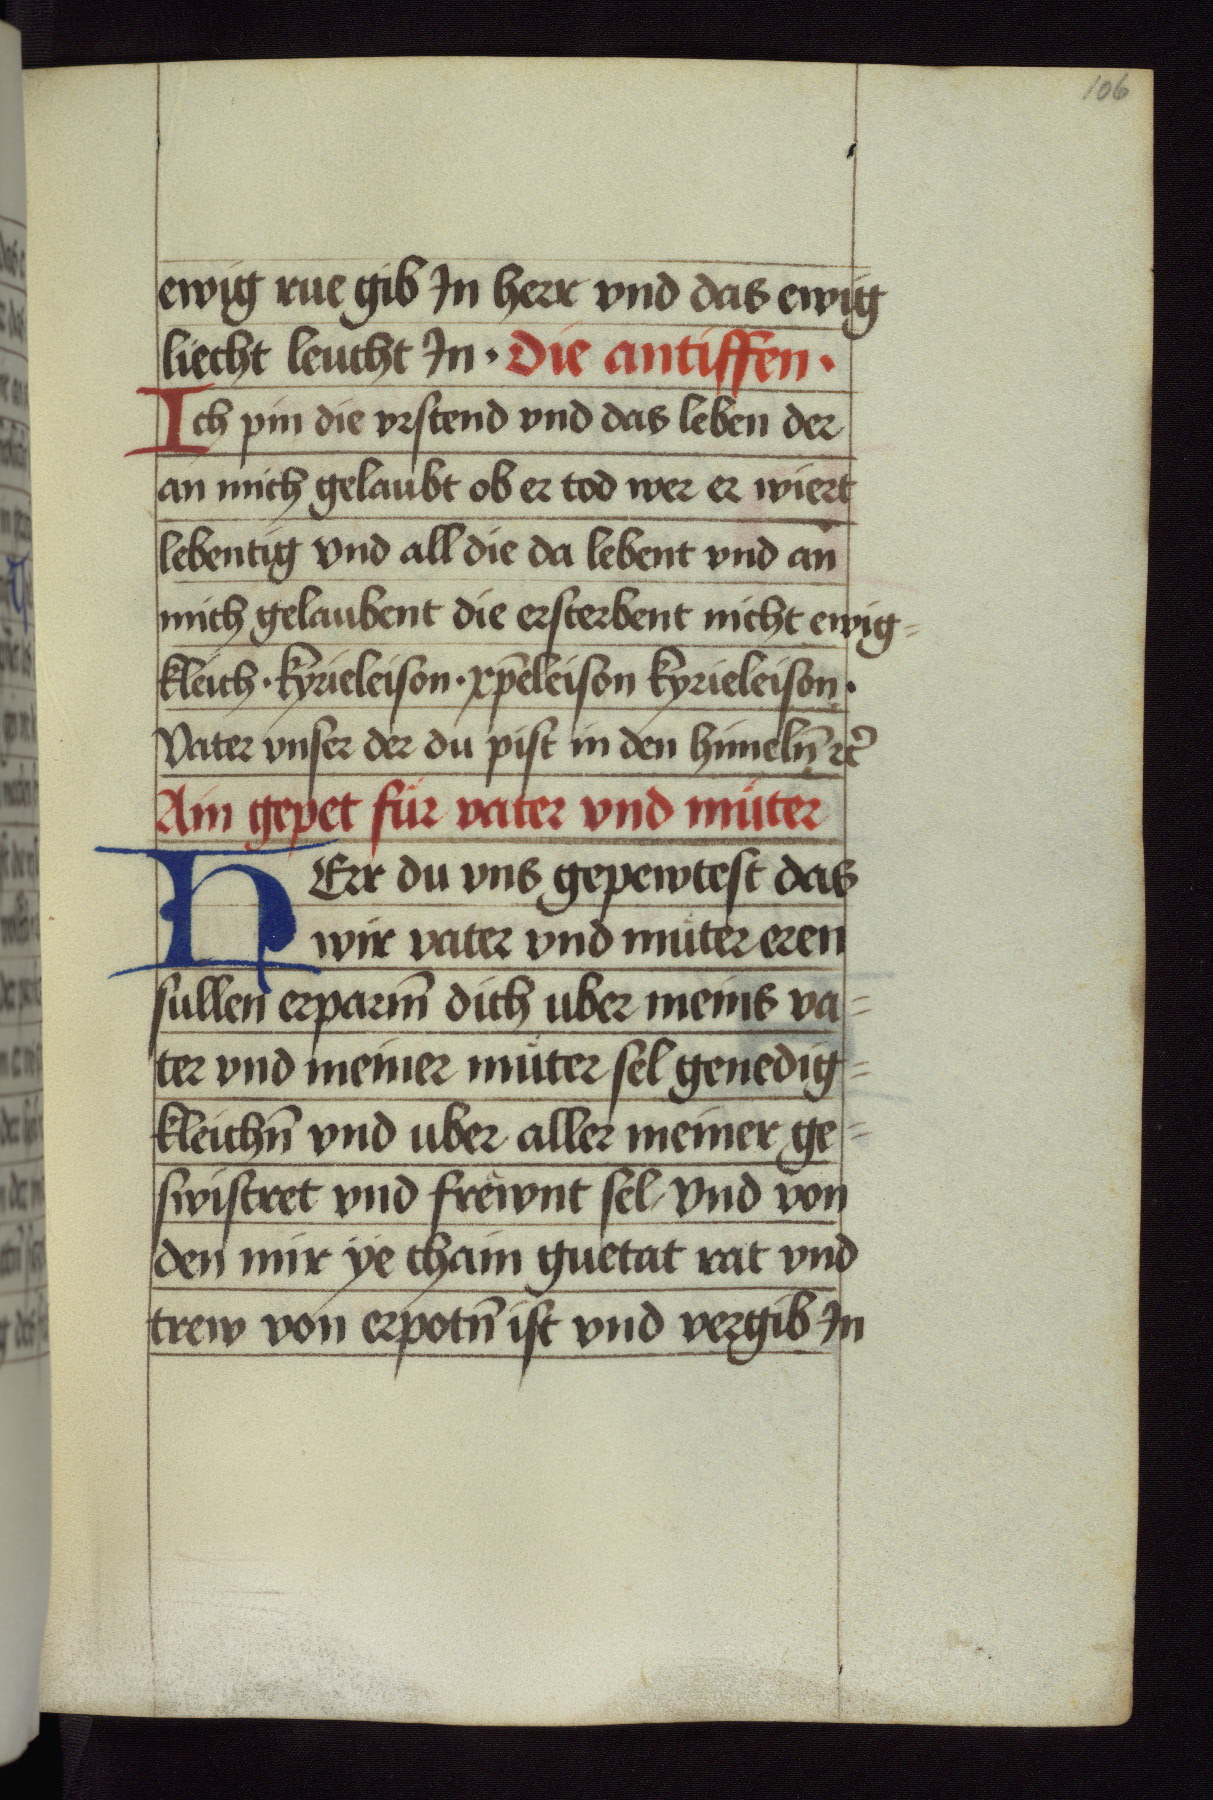 106
ewig rue gib In herr vnd das ewig
liecht leucht In · Die antiffen ·
Ich pin die vrstend vnd das leben der
an mich gelaubt ob er tod wer er wiert
lebentig vnd all die da lebent vnd an
mich gelaubent die ersterbent nicht ewig=
kleich · kyrieleison · xp̄eleison kyrieleison ·
Vater vnser der du pist in den himeln̄ ꝛc̄
Ain gepet für vater vnd müter
HErr du vns gepewtest das
wir vater vnd müter eren
sullen erparm̄ dich uber meins va=
ter vnd meiner müter sel genedig=
kleichn̄ vnd uber aller meiner ge=
swistret vnd frëwnt sel vnd von
den mir ÿe chain guetat rat vnd
trew von erpotn̄ ist vnd vergib In